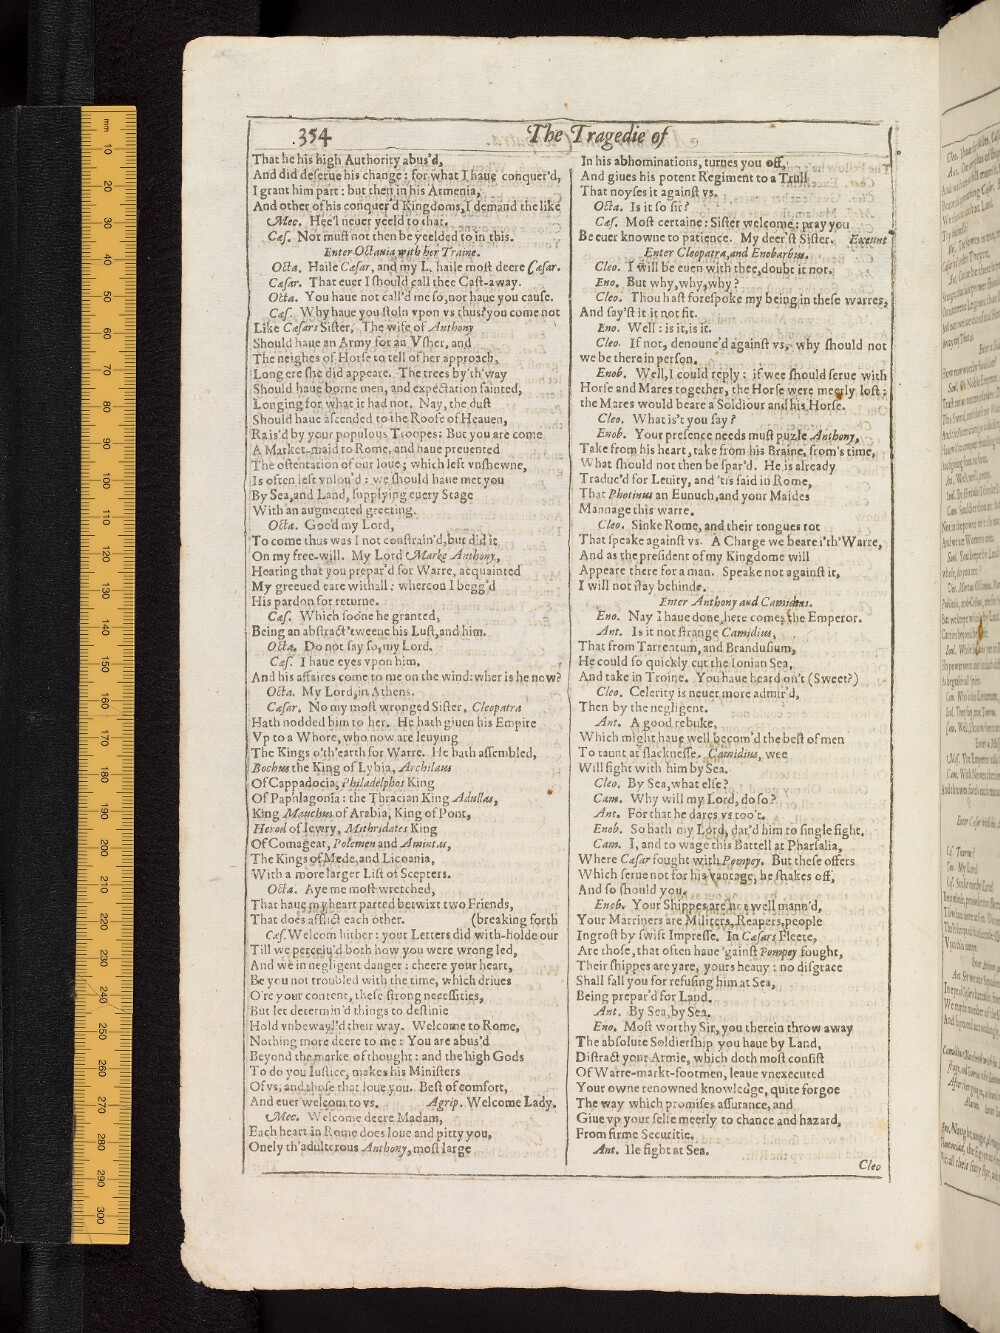 mm 10 20 30 40 50 60 70 80 90 100 110 120 130 140 150 160 170 180 190 200 210 220 230 240 250 260 270 280 290 300
354 The Tragedie of
That he his high Authority abus'd,
And did deſerue his change: for what I haue conquer'd,
I grant him part: but then in his Armenia,
And other of his conquer'd Kingdoms, I demand the like
Mec. Hee'l neuer yeeld to that.
Cæſ. Nor muſt not then be yeelded to in this.
Enter Octauia with her Traine.
Octa. Haile Cæſar, and my L. haile moſt deere Cæſar.
Cæſar. That euer I ſhould call thee Caſt-away.
Octa. You haue not call'd me ſo, nor haue you cauſe.
Cæſ. Why haue you ſtoln vpon vs thus? you come not
Like Cæſars Siſter, The wife of Anthony
Should haue an Army for an Vſher, and
The neighes of Horſe to tell of her approach,
Long ere ſhe did appeare. The trees by'th'way
Should haue borne men, and expectation fainted,
Longing for what it had not. Nay, the duſt
Should haue aſcended to the Roofe of Heauen,
Rais'd by your populous Troopes: But you are come
A Market-maid to Rome, and haue preuented
The oſtentation of our loue; which left vnſhewne,
Is often left vnlou'd: we ſhould haue met you
By Sea, and Land, ſupplying euery Stage
With an augmented greeting.
Octa. Good my Lord,
To come thus was I not conſtrain'd, but did it
On my free-will. My Lord Marke Anthony,
Hearing that you prepar'd for Warre, acquainted
My greeued eare withall: whereon I begg'd
His pardon for returne.
Cæſ. Which ſoone he granted,
Being an abſtract 'tweene his Luſt, and him.
Octa. Do not ſay ſo, my Lord.
Cæſ. I haue eyes vpon him,
And his affaires come to me on the wind: wher is he now?
Octa. My Lord, in Athens.
Cæſar. No my moſt wronged Siſter, Cleopatra
Hath nodded him to her. He hath giuen his Empire
Vp to a Whore, who now are leuying
The Kings o'th'earth for Warre. He hath aſſembled,
Bochus the King of Lybia, Archilaus
Of Cappadocia, Philadelphos King
Of Paphlagonia: the Thracian King Adullas,
King Mauchus of Arabia, King of Pont,
Herod of Iewry, Mithridates King
Of Comageat, Polemen and Amintas,
The Kings of Mede, and Licoania,
With a more larger Liſt of Scepters.
Octa. Aye me moſt wretched,
That haue my heart parted betwixt two Friends,
That does afflict each other. (breaking forth
Cæſ. Welcom hither: your Letters did with-holde our
Till we perceiu'd both how you were wrong led,
And we in negligent danger: cheere your heart,
Be you not troubled with the time, which driues
O're your content, theſe ſtrong neceſſities,
But let determin'd things to deſtinie
Hold vnbewayl'd their way. Welcome to Rome,
Nothing more deere to me: You are abus'd
Beyond the marke of thought: and the high Gods
To do you Iuſtice, makes his Miniſters
Of vs, and thoſe that loue you. Beſt of comfort,
And euer welcom to vs. Agrip. Welcome Lady.
Mec. Welcome deere Madam,
Each heart in Rome does loue and pitty you,
Onely th'adulterous Anthony, moſt large
In his abhominations, turnes you off,
And giues his potent Regiment to a Trull
That noyſes it againſt vs.
Octa. Is it ſo ſir?
Cæſ. Moſt certaine: Siſter welcome: pray you
Be euer knowne to patience. My deer'ſt Siſter. Exeunt
Enter Cleopatra, and Enobarbus.
Cleo. I will be euen with thee, doubt it not.
Eno. But why, why, why?
Cleo. Thou haſt foreſpoke my being in theſe warres,
And ſay'ſt it it not fit.
Eno. Well: is it, is it.
Cleo. If not, denounc'd againſt vs, why ſhould not
we be there in perſon.
Enob. Well, I could reply: if wee ſhould ſerue with
Horſe and Mares together, the Horſe were meerly loſt:
the Mares would beare a Soldiour and his Horſe.
Cleo. What is't you ſay?
Enob. Your preſence needs muſt puzle Anthony,
Take from his heart, take from his Braine, from's time,
What ſhould not then be ſpar'd. He is already
Traduc'd for Leuity, and 'tis ſaid in Rome,
That Photinus an Eunuch, and your Maides
Mannage this warre.
Cleo. Sinke Rome, and their tongues rot
That ſpeake againſt vs. A Charge we beare i'th'Warre,
And as the preſident of my Kingdome will
Appeare there for a man. Speake not againſt it,
I will not ſtay behinde.
Enter Anthony and Camidias.
Eno. Nay I haue done, here comes the Emperor.
Ant. Is it not ſtrange Camidius,
That from Tarrentum, and Branduſium,
He could ſo quickly cut the Ionian Sea,
And take in Troine. You haue heard on't (Sweet?)
Cleo. Celerity is neuer more admir'd,
Then by the negligent.
Ant. A good rebuke,
Which might haue well becom'd the beſt of men
To taunt at ſlackneſſe. Camidius, wee
Will fight with him by Sea.
Cleo. By Sea, what elſe?
Cam. Why will my Lord, do ſo?
Ant. For that he dares vs too't.
Enob. So hath my Lord, dar'd him to ſingle fight.
Cam. I, and to wage this Battell at Pharſalia,
Where Cæſar fought with Pompey. But theſe offers
Which ſerue not for his vantage, he ſhakes off,
And ſo ſhould you.
Enob. Your Shippes are not well mann'd,
Your Marriners are Militers, Reapers, people
Ingroſt by ſwift Impreſſe. In Cæſars Fleete,
Are thoſe, that often haue 'gainſt Pompey fought,
Their ſhippes are yare, yours heauy: no diſgrace
Shall fall you for refuſing him at Sea,
Being prepar'd for Land.
Ant. By Sea, by Sea.
Eno. Moſt worthy Sir, you therein throw away
The abſolute Soldierſhip you haue by Land,
Diſtract your Armie, which doth moſt conſiſt
Of Warre-markt-footmen, leaue vnexecuted
Your owne renowned knowledge, quite forgoe
The way which promiſes aſſurance, and
Giue vp your ſelfe meerly to chance and hazard,
From firme Securitie.
Ant. Ile fight at Sea.
Cleo